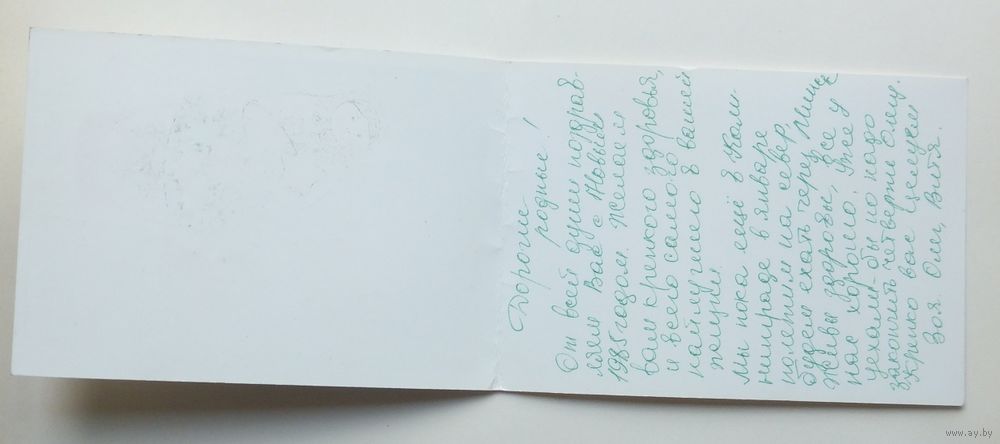 Дорогие
родные!
От всей души поздрав-
ляем Вас с Новым
1985 годом. Желаем
вам крепкого здоровья,
и всего самого
найлучшего в вашей
жизни.
Мы пока ещё в Кали-
нинграде в январе
полетим на север,
будем ехать через Минск
Живы здоровы, все у
нас хорошо. Уже
уехали-бы но надо
закончить четверть Олі.
Крепко вас целуем
Зоя. Оля, Витя.
www.ay.by